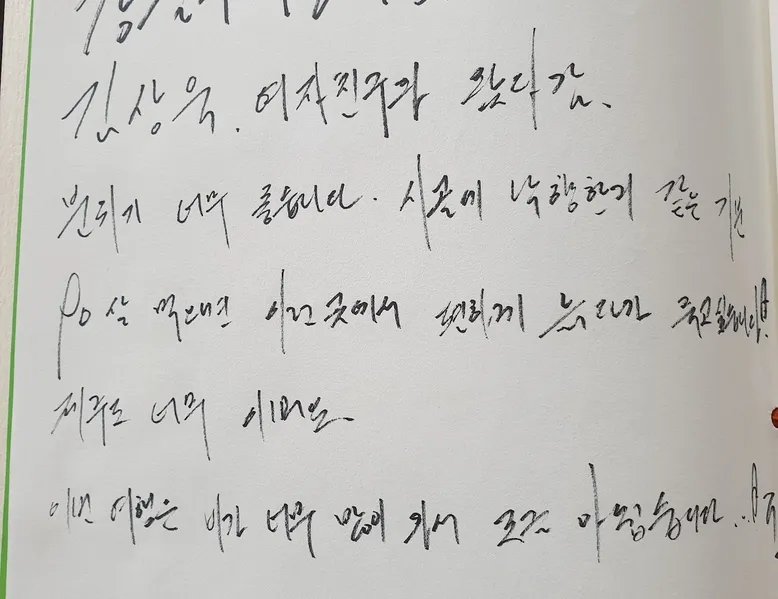 김상욱. 여자친구와 왔다감.
분위기 너무 좋습니다. 시골에 낙향한거 같은 기분
80살 먹으면 이런 곳에서 편하게 늙다가 죽고싶습니다!
제주도 너무 이뻐요.
이번 여행은 비가 너무 많이 와서 조금 아쉽습니다..